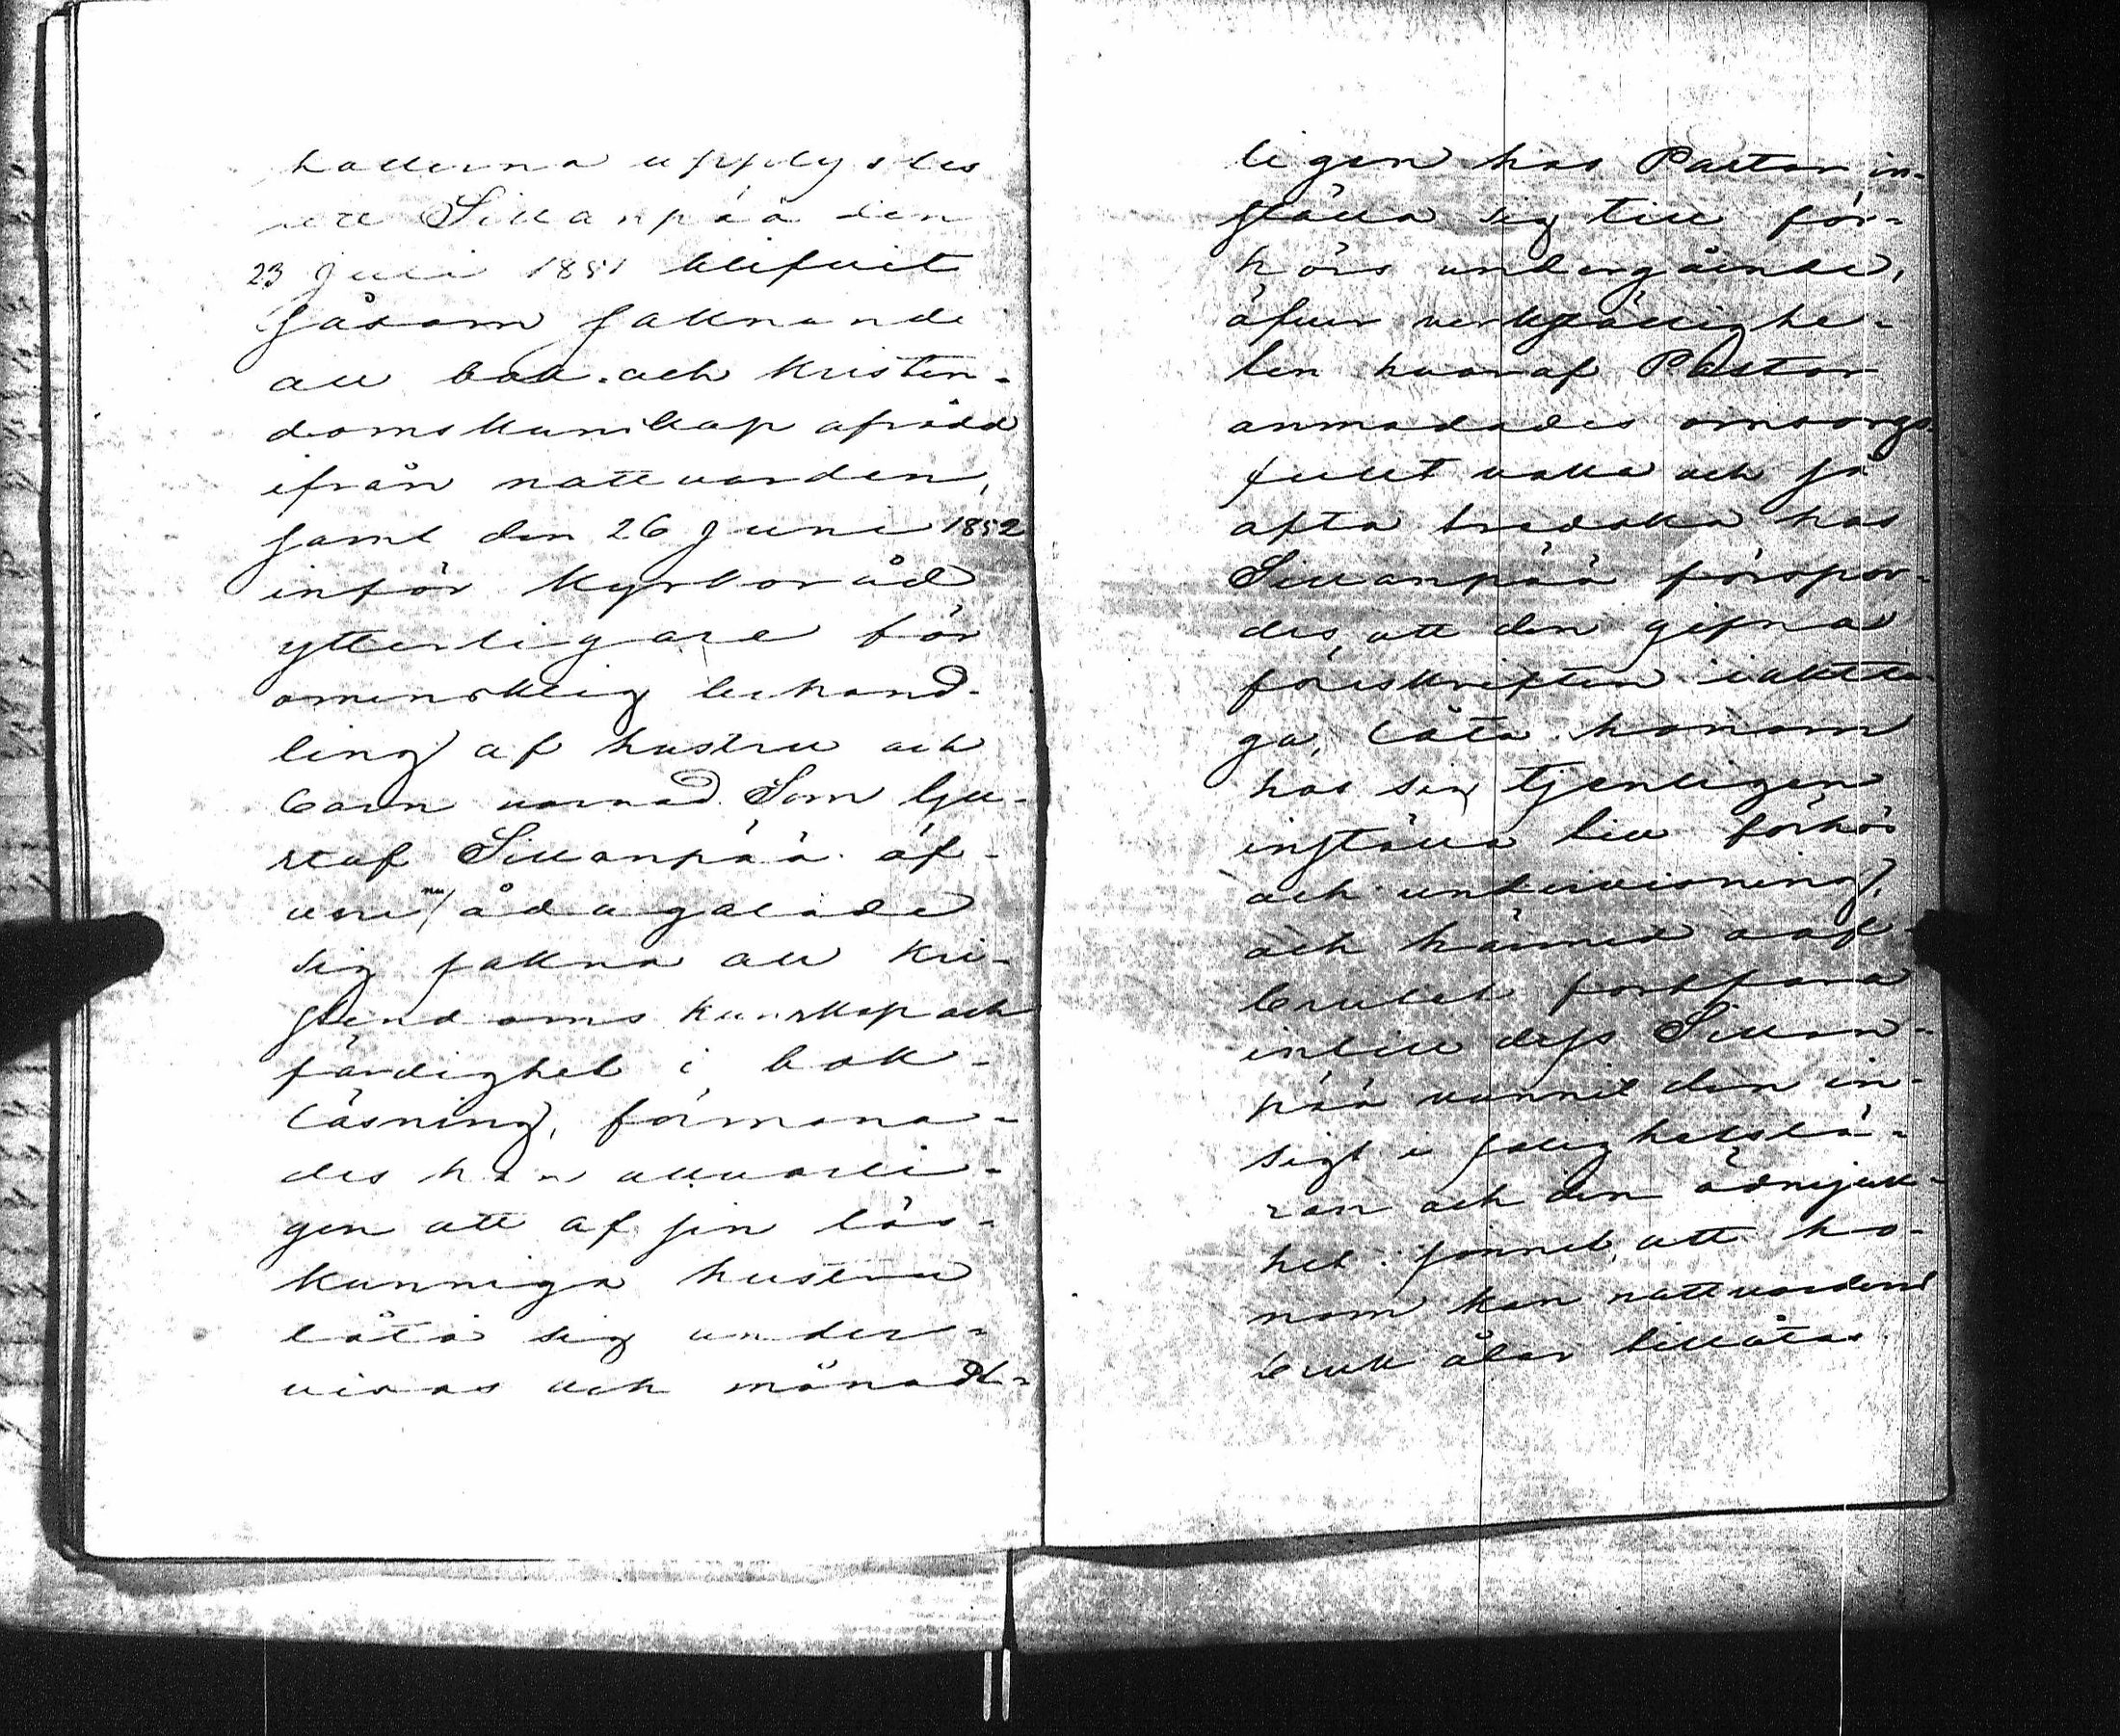 hållerna upplystes
att Sillanpää den
23 Juli 1851 blifvit
såsom saknande
all bok- och kristen-
domskunskap afrådd
ifrån nattvarden,
samt den 26 Juni 1852
inför Kyrkoråd
ytterligare för
omensklig behand-
ling af hustru och
barn varnad. Som Gu-
staf Sillanpää äf-
ven nu ådagalade
sig sakna all Kri-
stendoms kunskap och
färdighet i bok-
läsning, förmana-
des han allvarli-
gen att af sin läs-
kunniga hustru
låta sig under-
visas och månadt-
ligen hos Pastor in-
ställa sig till för-
hörs undergående,
öfver verkställighe-
ten hvaraf Pastor
anmodades omsorgs-
fullt vaka och så
ofta tredska hos
Sillanpää förspor-
des, att den gifna
föreskriften iaktta-
ga, låta honom
hos sig tjenligen
inställa till förhör
och undervisning,
och härmed oaf-
brutet fortfara
intill dess Sillan-
pää vunnit den in-
sigt i salighetslä-
ran och den ödmjuk-
het i sinnet, att ho-
nom kan nattvardens
bruk åter tillåtas.